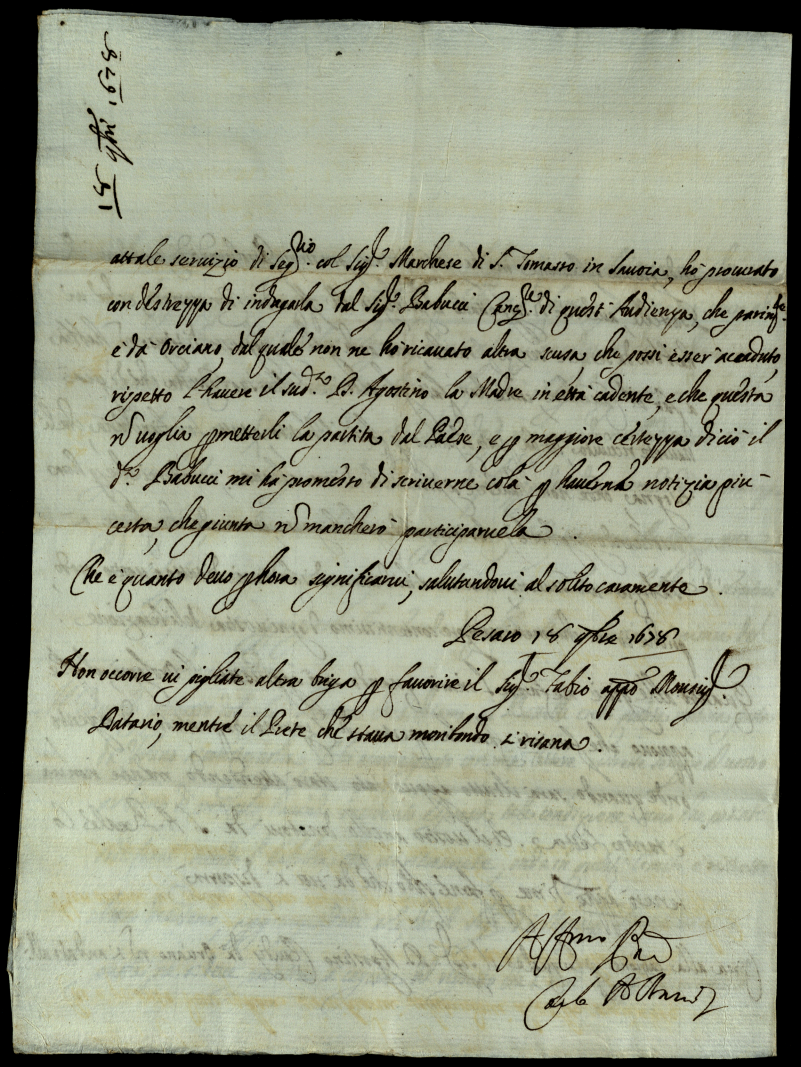 15 9bri 1678
attale servizio di Seg.rio col Sig.r Marchese di S. Tomasso in Savoia, hò procurato
con destrezza di indagarla dal Sig.r Babucci Canc.re di quest'Audienza, che parim.te
è dà Orciano, dal quale non ne hò ricavato altra scusa, che possi esser accaduto,
rispetto l'havere il sud.o D. Agostino la Madre in età cadente, e che questa
nõ voglia ꝑmetterli la partita dal Paese, e ꝑ maggiore certezza di ciò il
d.o Babucci mi hà promesso di scriverne colà ꝑ haverne notizia più
certa, che giunta nõ mancherò participarvela.
Che è quanto devo ꝑ hora significarvi, salutandovi al solito caramente.
Pesaro 18 9bre 1678
Non occorre vi pigliate altra briga ꝑ favorire il Sig.r Fabio appo Monsig.r
Datario, mentre il Prete che stava moribondo si risana.
Aff.mo
Carlo Albani